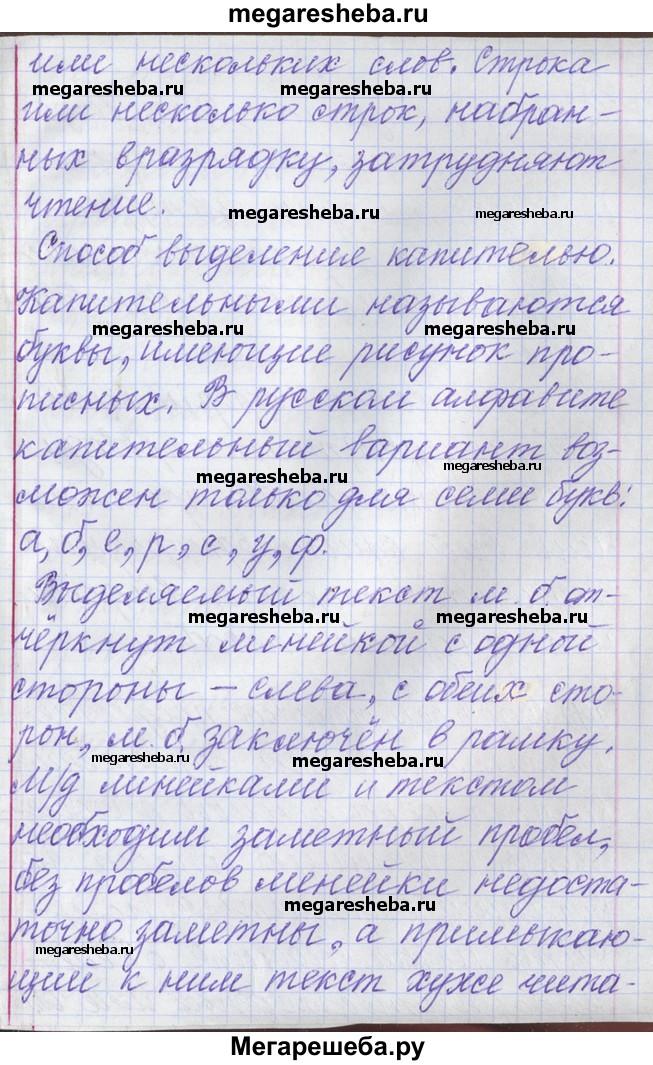 megaresheba.ru
или нескольких слов. Строка
megaresheba.ru megaresheba.ru
или несколько строк, набран-
ных вразрядку, затрудняют
чтение.
megaresheba.ru megaresheba.ru
Способ выделения капителью.
Капительными называются
megaresheba.ru megaresheba.ru
буквы, имеющие рисунок про-
писных. В русском алфавите
капительный вариант воз-
megaresheba.ru megaresheba.ru
можен только для семи букв:
а, б, е, р, с, у, ф.
Выделяемый текст м. б. от-
megaresheba.ru megaresheba.ru
чёркнут линейкой с одной
стороны – слева, с обеих сто-
рон, м. б. заключён в рамку.
megaresheba.ru megaresheba.ru
М/д линейками и текстом
необходим заметный пробел,
без пробелов менейки недоста-
megaresheba.ru
точно заметны, а примыкаю-
megaresheba.ru
щий к ним текст хуже чита-
Мегарешеба.ру